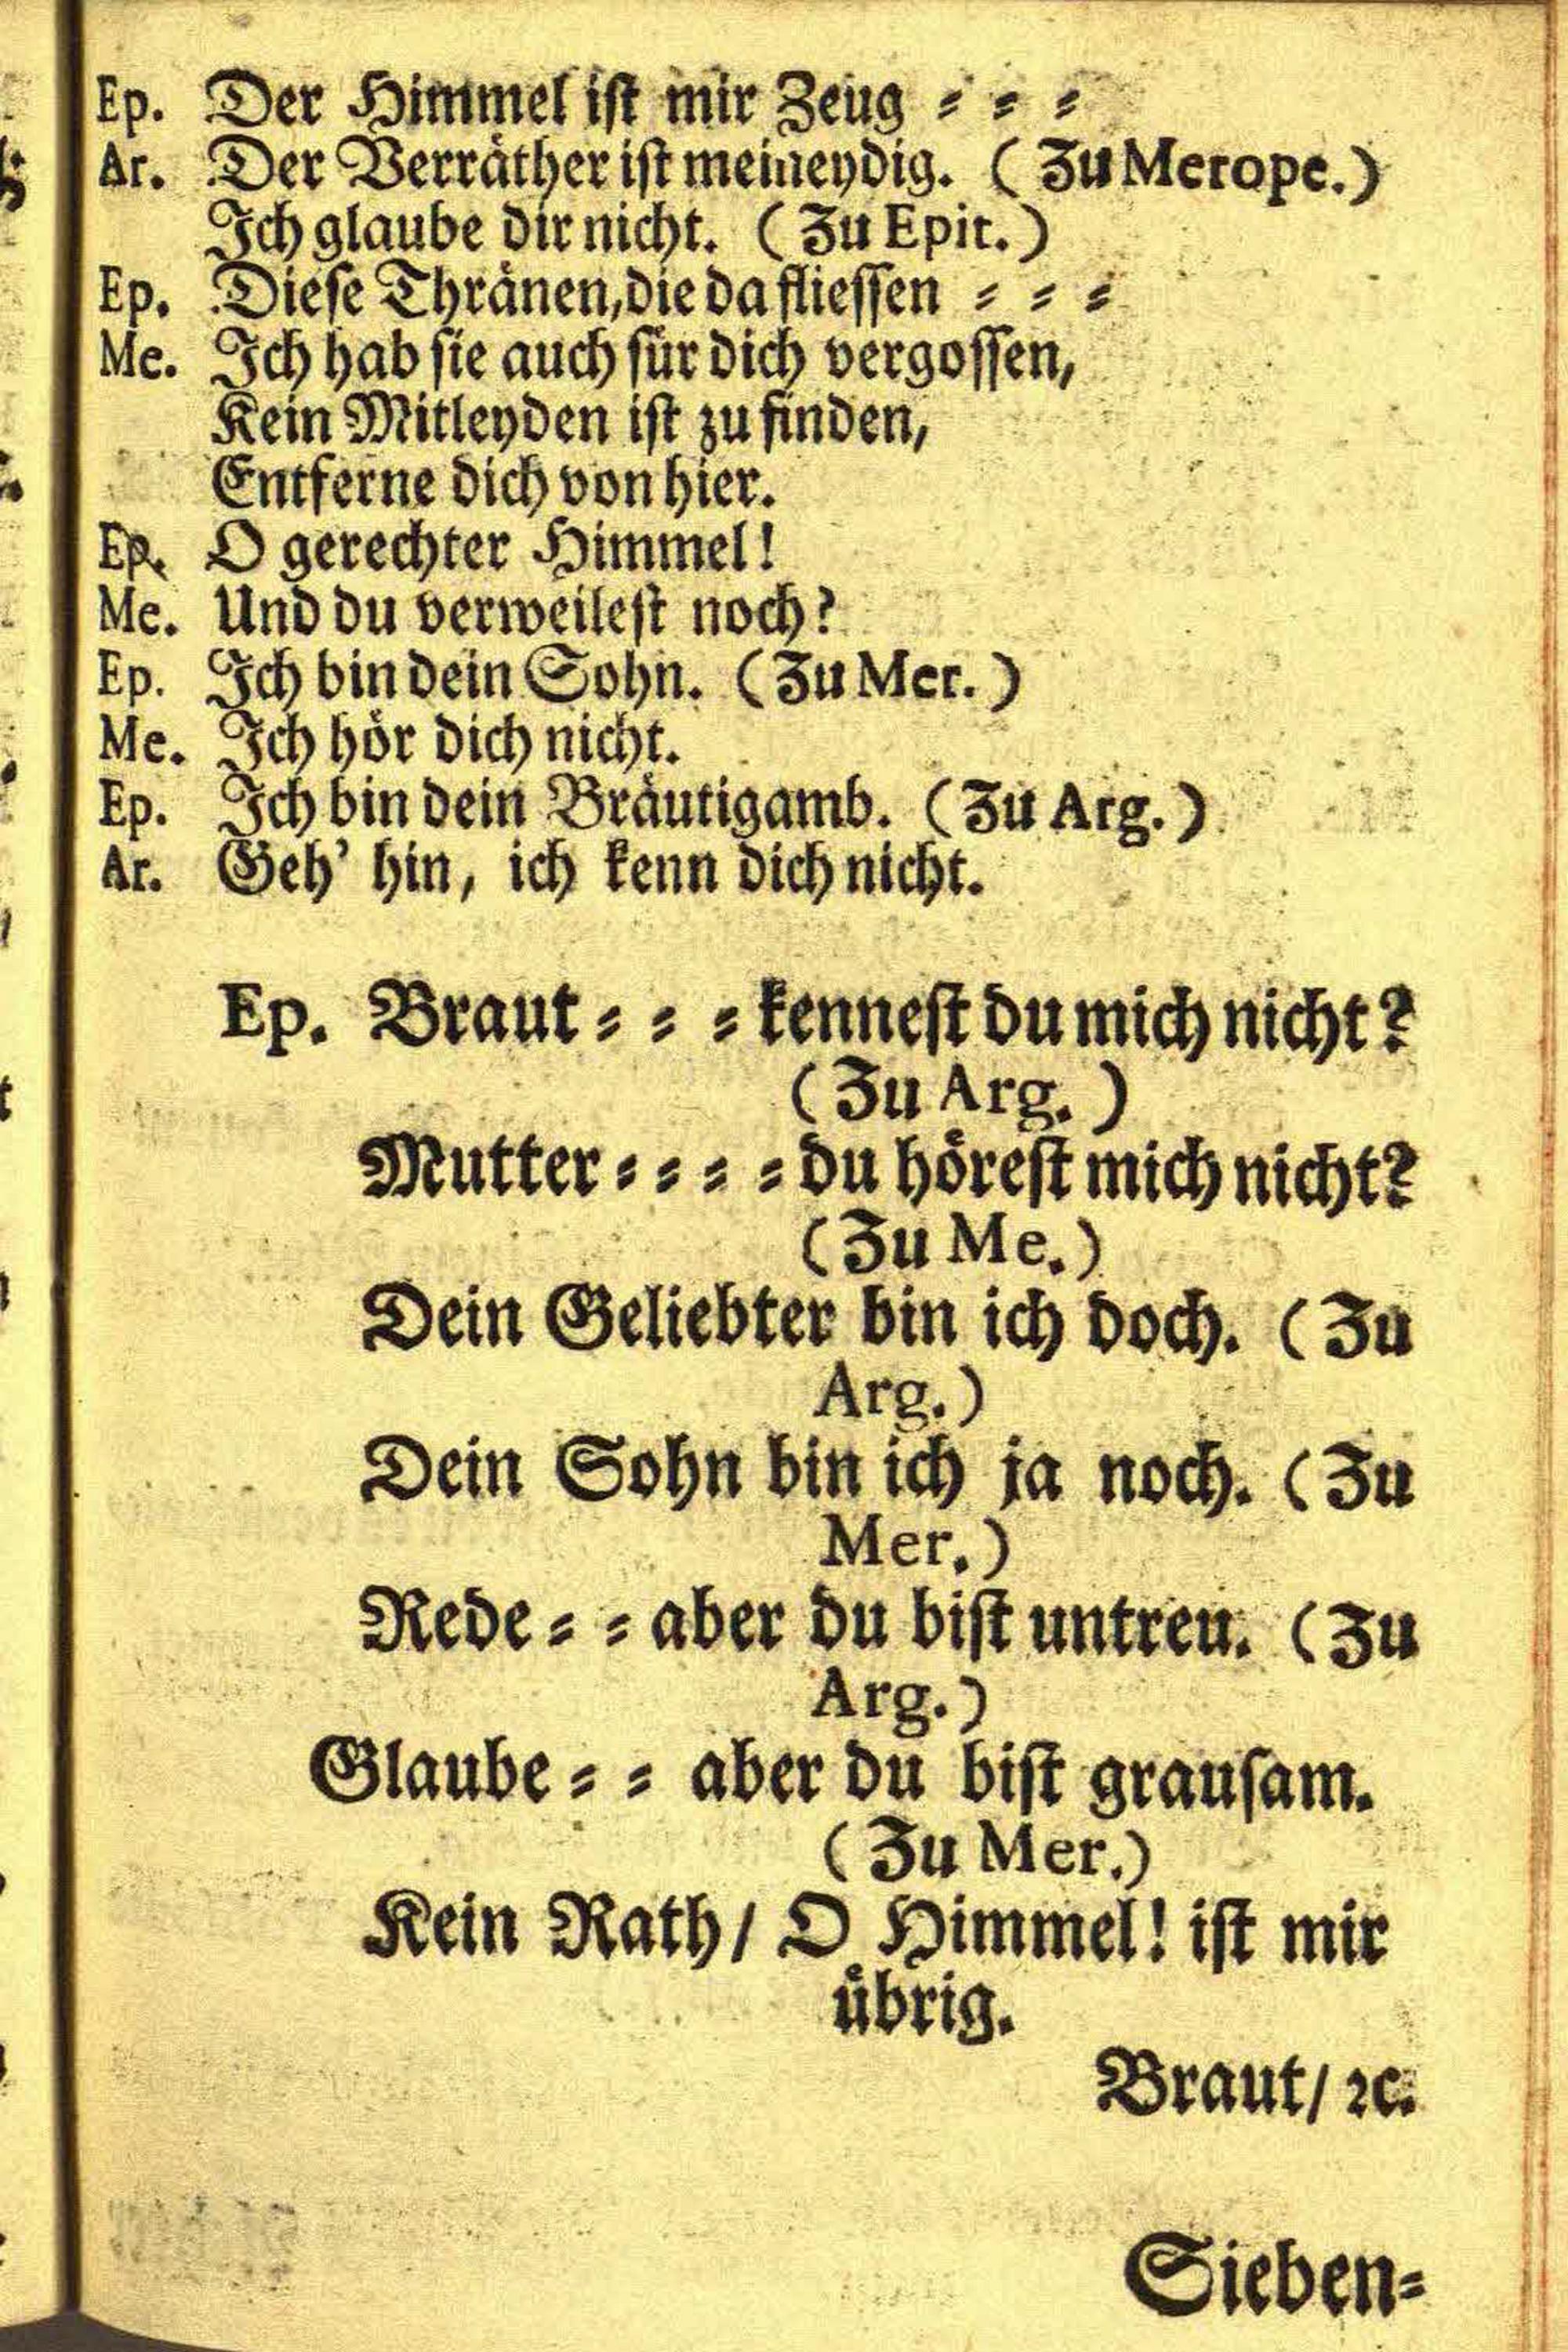 Ep. Der Himmel ist mir Zeug = = =
Ar. Der Verräther ist meineydig. (Zu Merope.)
Ich glaube dir nicht. (Zu Epit.)
Ep. Diese Thränen, die da fliessen = = =
Me. Ich hab sie auch für dich vergossen,
Kein Mitleyden ist zu finden,
Entferne dich von hier.
Ep. O gerechter Himmel!
Me. Und du verweilest noch?
Ep. Ich bin dein Sohn. (Zu Mer.)
Me. Ich hör dich nicht.
Ep. Ich bin dein Bräutigamb. (Zu Arg.)
Ar. Geh' hin, ich kenn dich nicht.
Ep. Braut = = = kennest du mich nicht?
(Zu Arg.)
Mutter = = = = du hörest mich nicht?
(Zu Me.)
Dein Geliebter bin ich doch. (Zu
Arg.)
Dein Sohn bin ich ja noch. (Zu
Mer.)
Rede = = aber du bist untreu. (Zu
Arg.)
Glaube = = aber du bist grausam.
(Zu Mer.)
Kein Rath / O Himmel! ist mir
übrig.
Braut / ꝛc.
Sieben=